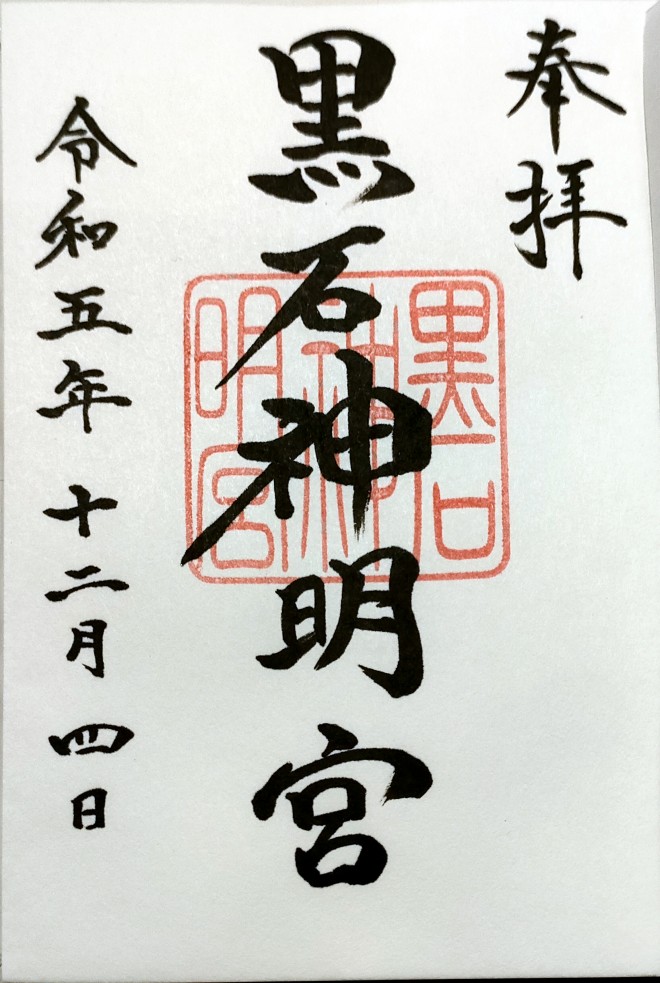 奉拝
黒石神明宮
黒石
神
明宮
令和五年十二月四日